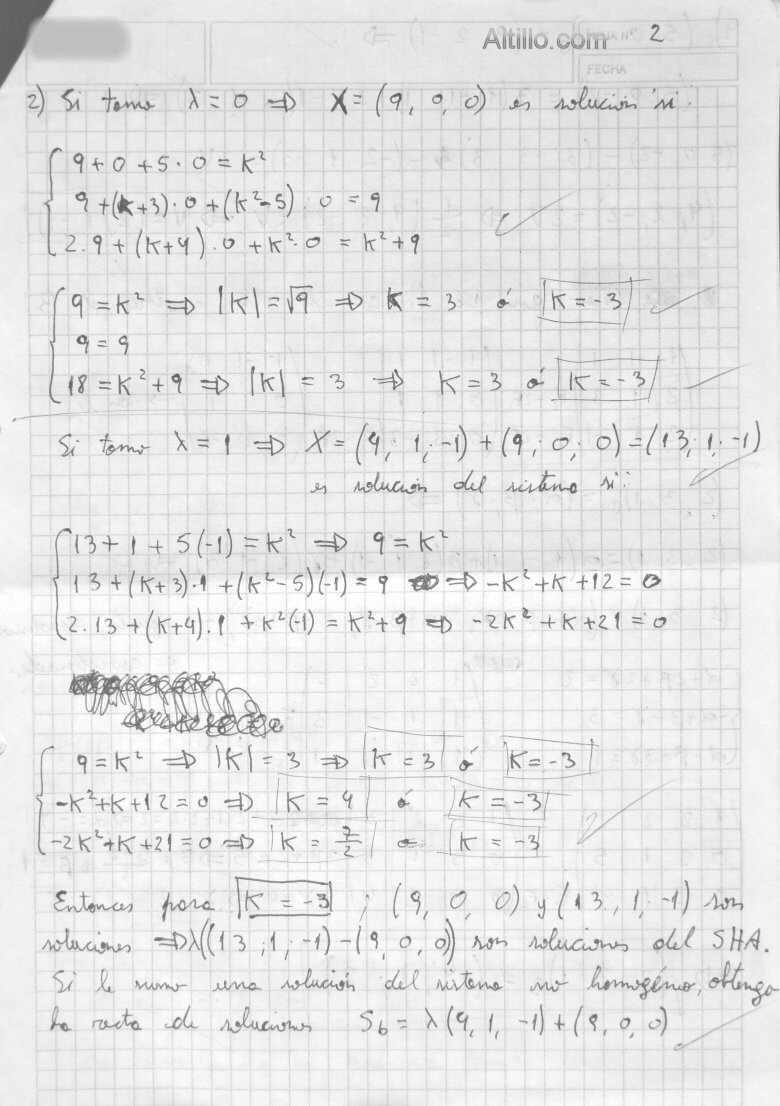 Altillo.com
HOJA Nº 2
FECHA
2) Si tomo λ = 0 ⇒ X = (9, 0, 0) es solución si:
9 + 0 + 5 · 0 = K²
9 + (K+3) · 0 + (K²-5) · 0 = 9
2 · 9 + (K+4) · 0 + K² · 0 = K² + 9
9 = K² ⇒ |K| = √9 ⇒ K = 3 ó K = -3
9 = 9
18 = K² + 9 ⇒ |K| = 3 ⇒ K = 3 ó K = -3
Si tomo λ = 1 ⇒ X = (4; 1; -1) + (9; 0; 0) = (13; 1; -1)
es solución del sistema si:
13 + 1 + 5(-1) = K² ⇒ 9 = K²
13 + (K+3) · 1 + (K²-5)(-1) = 9 ⇒ -K² + K + 12 = 0
2 · 13 + (K+4) · 1 + K²(-1) = K² + 9 ⇒ -2K² + K + 21 = 0
9 = K² ⇒ |K| = 3 ⇒ K = 3 ó K = -3
-K² + K + 12 = 0 ⇒ K = 4 ó K = -3
-2K² + K + 21 = 0 ⇒ K = 7/2 o K = -3
Entonces para K = -3 ; (9, 0, 0) y (13, 1, -1) son
soluciones ⇒ λ((13; 1; -1) - (9, 0, 0)) son soluciones del SHA.
Si le sumo una solución del sistema no homogéneo, obtengo
la recta de soluciones S_b = λ(4, 1, -1) + (9, 0, 0)